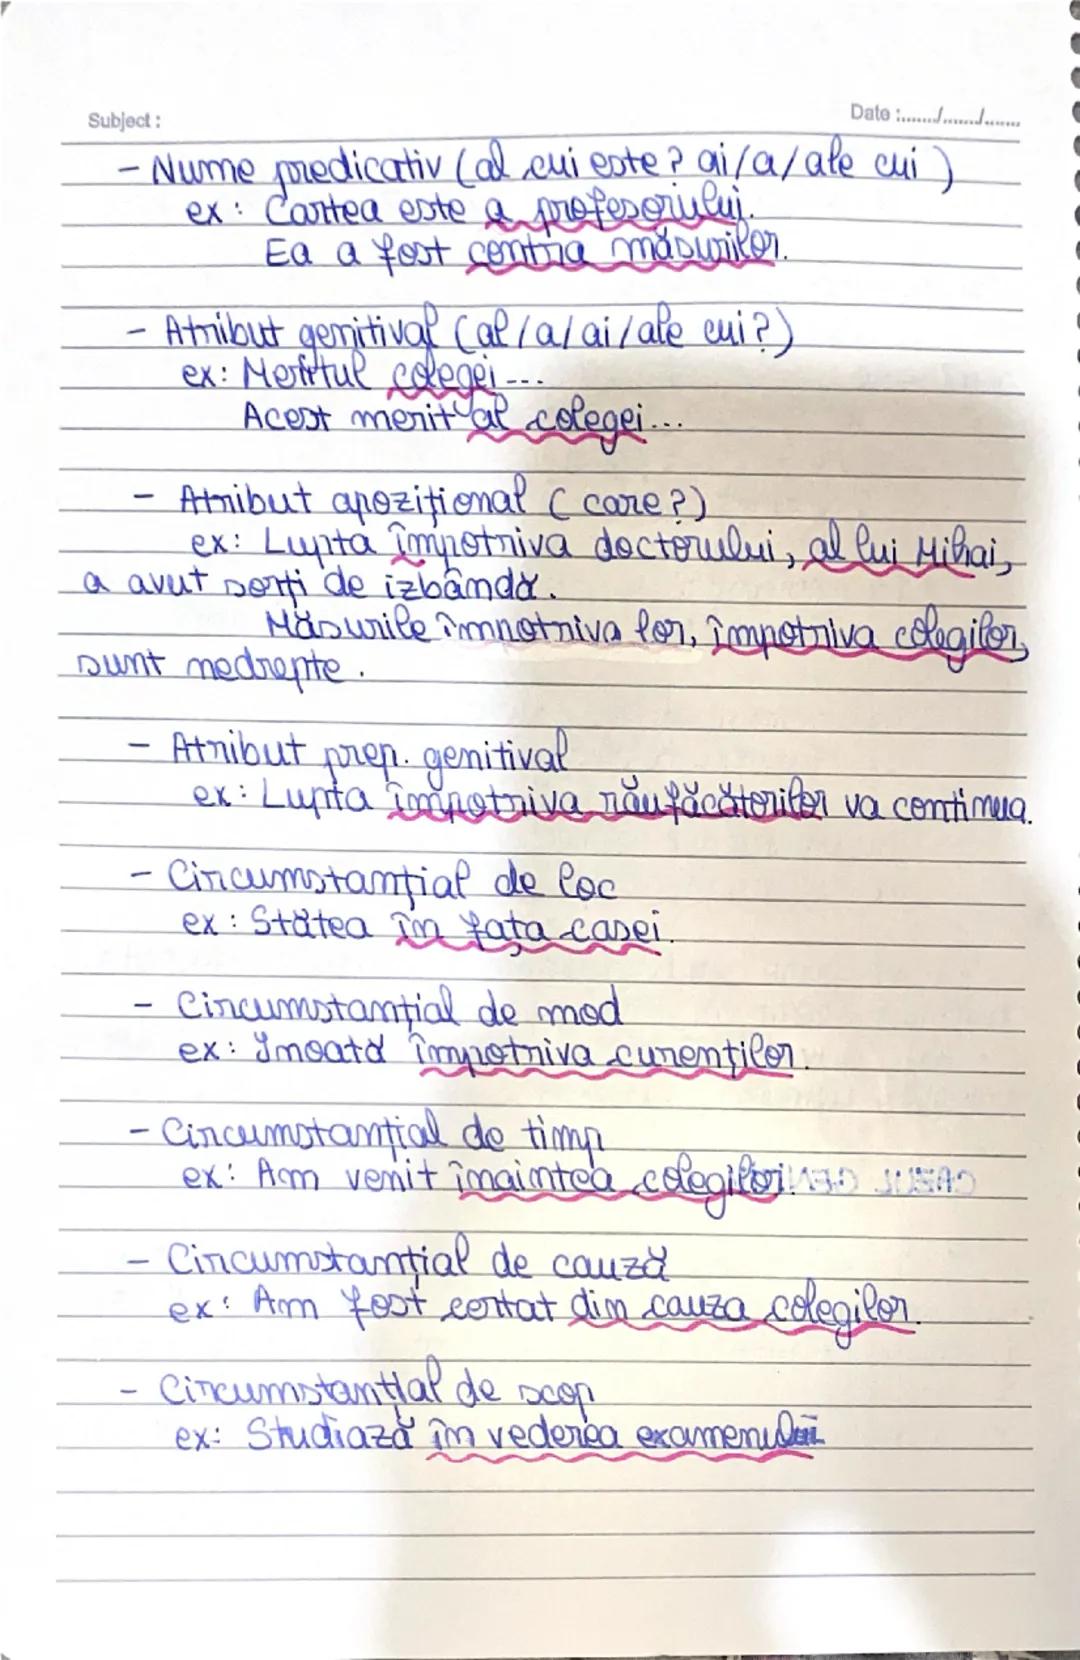 Subject:
Date :......./......./.......
- Nume predicativ (al cui este? ai/a/ale cui)
ex: Cartea este a profesorului.
Ea a fost contra măsurilor.
- Atribut genitival (al/a/ai/ale cui?)
ex: Meritul colegei...
Acest merit al colegei...
- Atribut apozițional (care?)
ex: Lupta împotriva doctorului, al lui Mihai,
a avut sorți de izbândă.
Măsurile împotriva lor, împotriva colegilor,
sunt nedrepte.
- Atribut prep. genitival
ex: Lupta împotriva răufăcătorilor va continua.
- Circumstanțial de loc
ex: Stătea în fața casei.
- Circumstanțial de mod
ex: Înoată împotriva curenților.
- Circumstanțial de timp
ex: Am venit înaintea colegilor.
- Circumstanțial de cauză
ex: Am fost certat din cauza colegilor.
- Circumstanțial de scop
ex: Studiază în vederea examenului